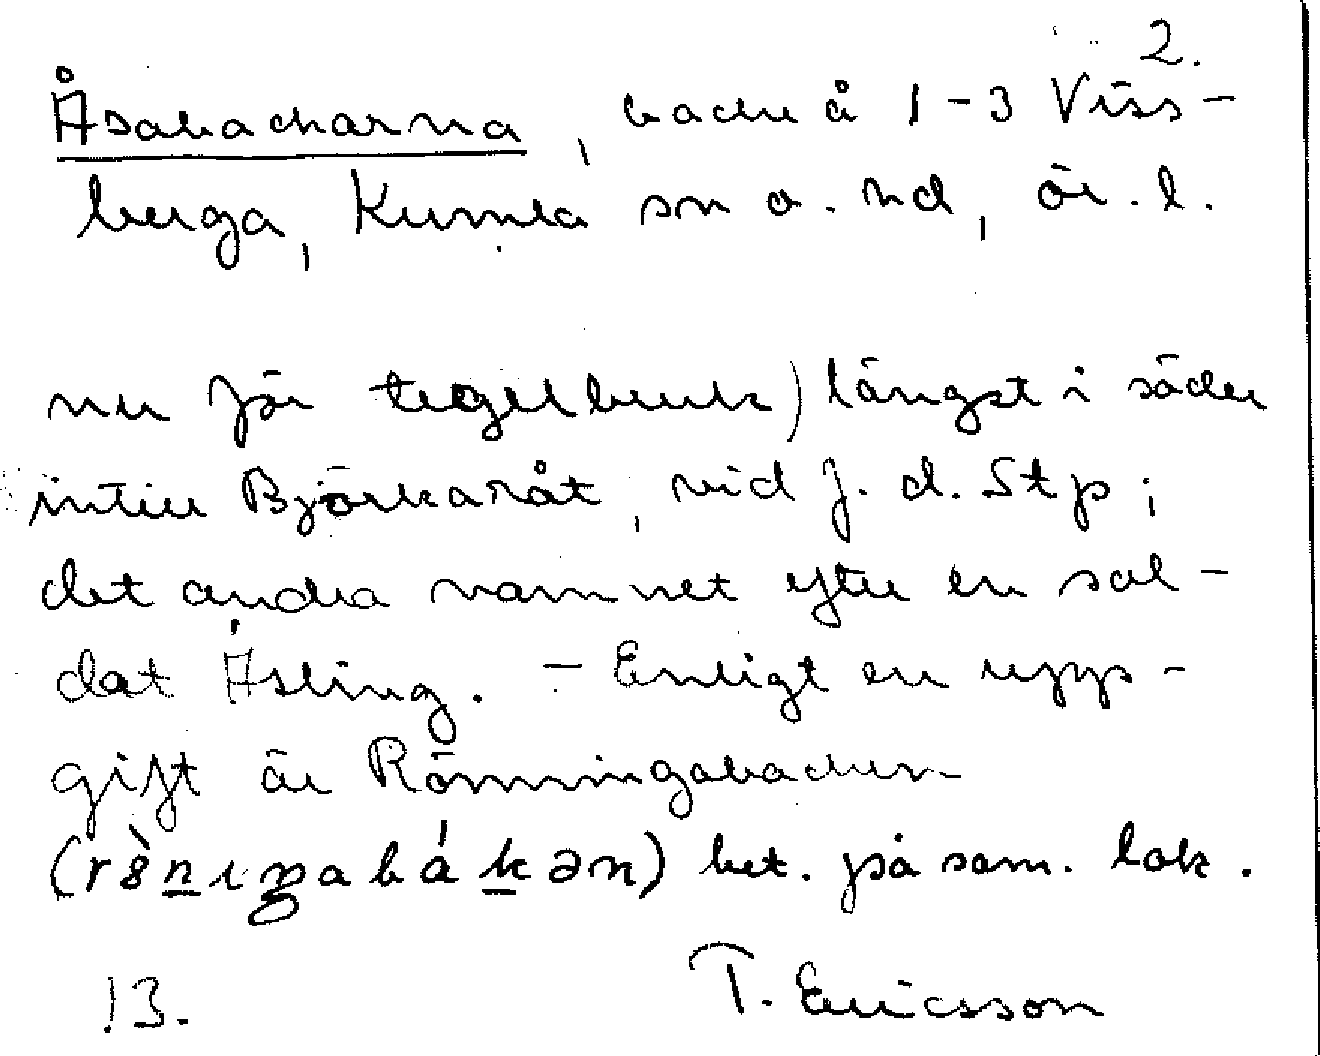 2.
Åsabackarna, backe å 1-3 Viss-
berga, Kumla sn o. hd, ör. l.
nu för tegelbruk) längst i söder
intill Björkaråt, vid J. d. Stp;
det andra namnet efter en sol-
dat Åsling. - Enligt en upp-
gift är Rönningabacken
bet. på sam. lok.
13. T. Ericsson